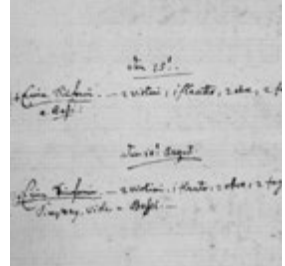 25t.
Eine Sinfonie. — 2 violini, 1 flauto, 2 oboe, 2 f
e Bassi.
10t August.
Eine Sinfonie — 2 violini, 1 flauto, 2 oboe, 2 fag
viole e Bassi. —